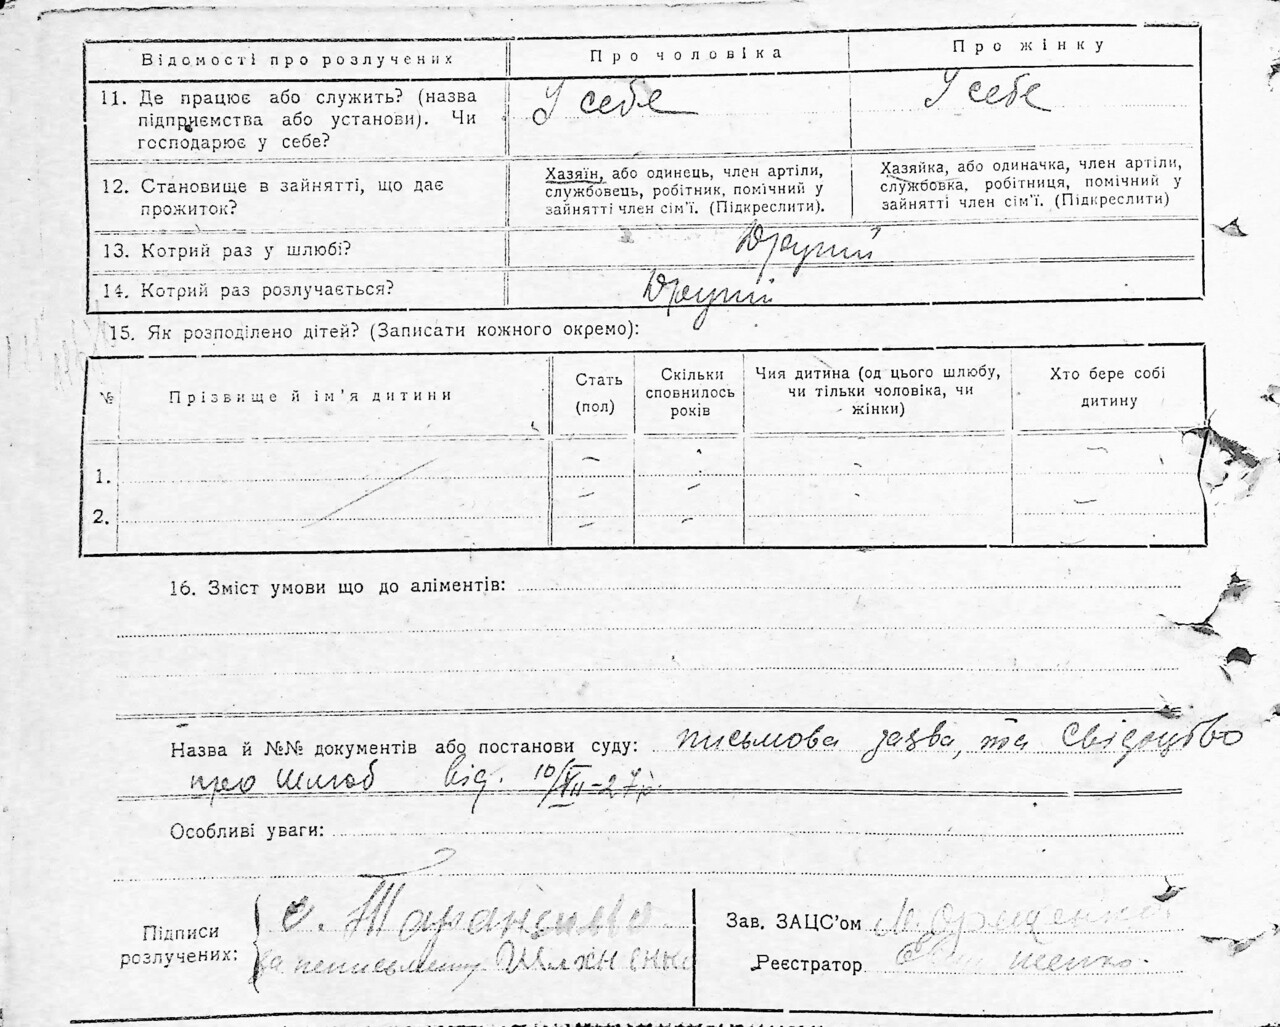 Відомості про розлучених
Про чоловіка
Про жінку
11. Де працює або служить? (назва
підприємства або установи). Чи
господарює у себе?
У себе
У себе
12. Становище в зайнятті, що дає
прожиток?
Хазяїн, або одинець, член артіли,
службовець, робітник, помічний у
зайнятті член сім'ї. (Підкреслити).
Хазяйка, або одиначка, член артіли,
службовка, робітниця, помічний у
зайнятті член сім'ї. (Підкреслити)
13. Котрий раз у шлюбі?
Другий
14. Котрий раз розлучається?
Другий
15. Як розподілено дітей? (Записати кожного окремо):
№
Прізвище й ім'я дитини
Стать
(пол)
Скільки
сповнилось
років
Чия дитина (од цього шлюбу,
чи тільки чоловіка, чи
жінки)
Хто бере собі
дитину
1.
2.
16. Зміст умови що до аліментів:
Назва й №№ документів або постанови суду: письмова заява, та свідоцтво
про шлюб від. 10/XII-27р.
Особливі уваги:
Підписи
розлучених:
за неписьменну
Зав. ЗАЦС'ом
Реєстратор